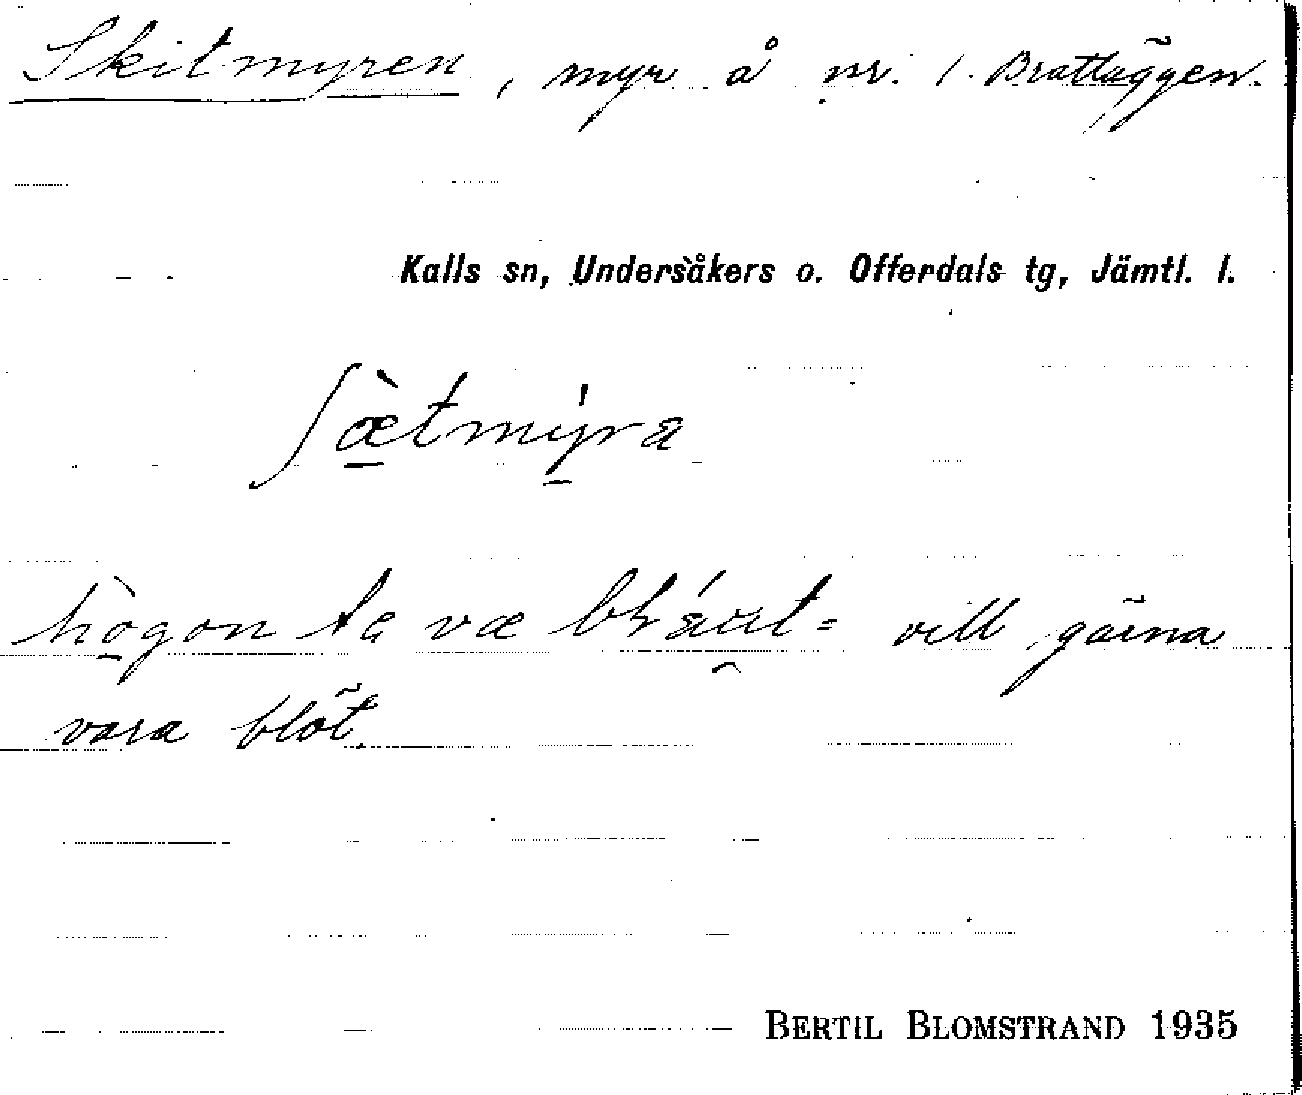 Skitmyren, myr å nr. 1. Brattäggen.
Kalls sn, Undersåkers o. Offerdals tg, Jämtl. l.
ʃæ̀tmýra
hògon ta væ
= vill gärna
vara blöt.
BERTIL BLOMSTRAND 1935